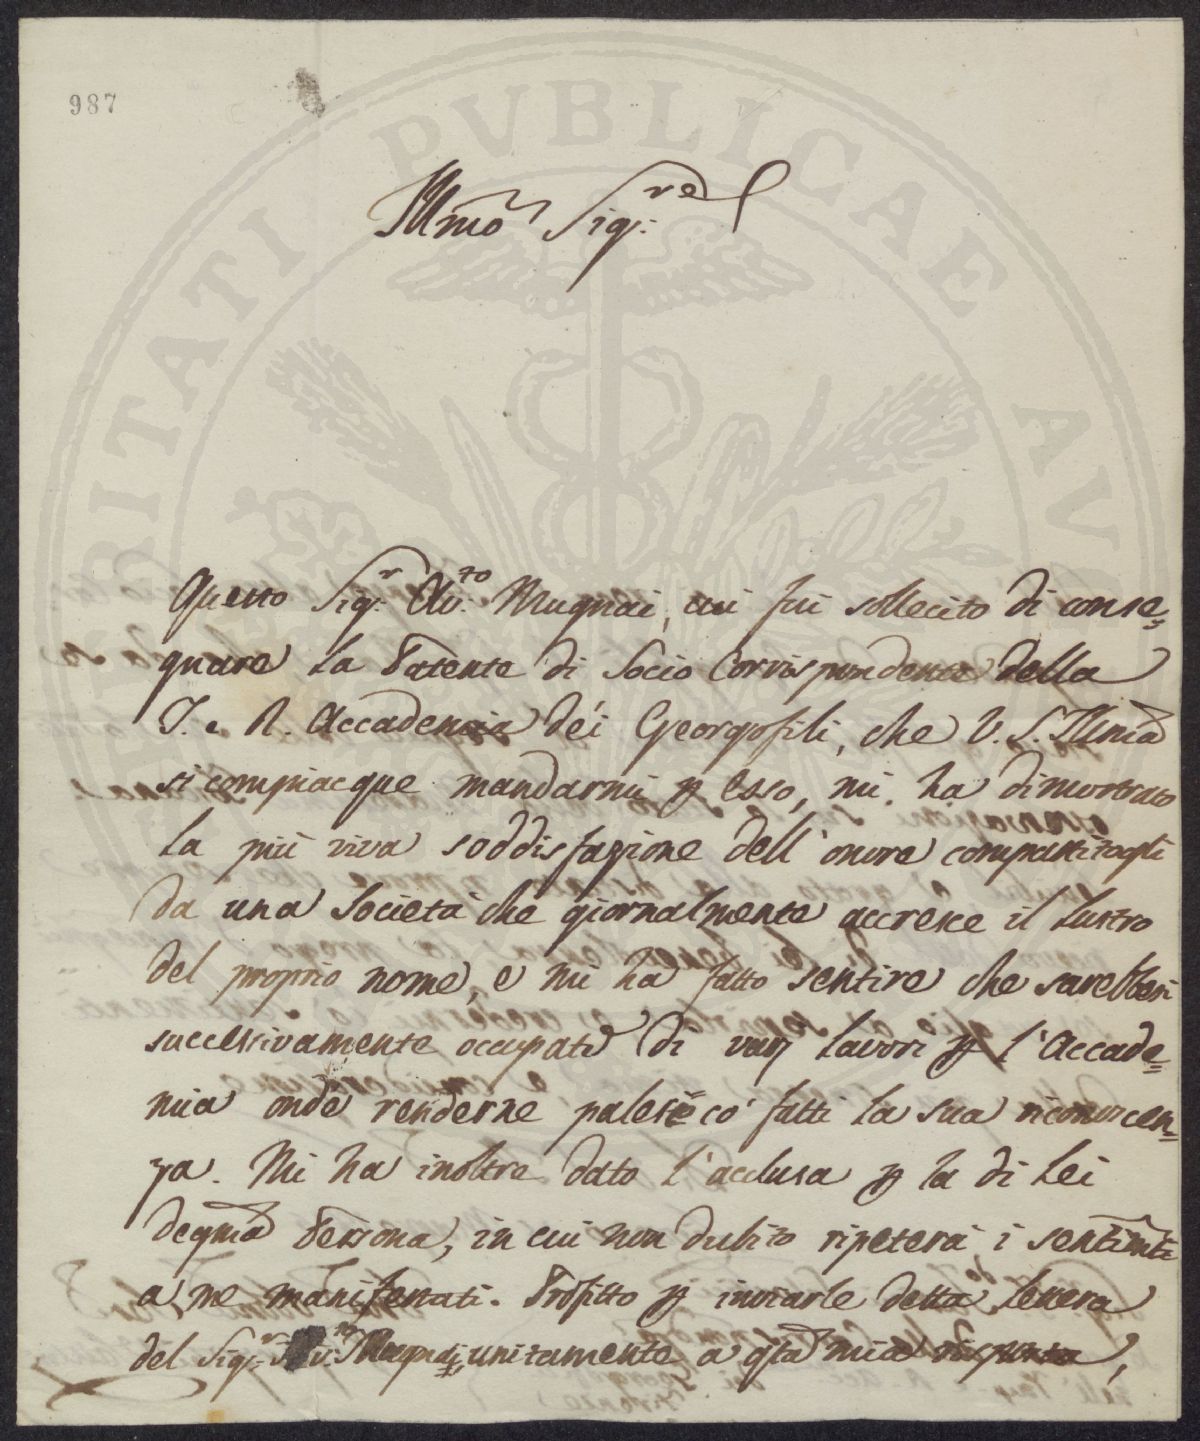 987
PROSPERITATI PVBLICAE AV
Illmo Sig:re
Questo Sig:r Av:to Mugnai, cui fui sollecito di conse=
gnare la Patente di Socio Corrispondente della
I. e R. Accademia dei Georgofili, che V. S. Illma
si compiacque mandarmi p esso, mi ha dimostrato
la più viva soddisfazione dell' onore compartitogli
da una Società che giornalmente accresce il lustro
del proprio nome, e mi ha fatto sentire che sarebbesi
successivamente occupato di varj lavori p l'Accade=
mia onde renderne palese co' fatti la sua riconoscen=
za. Mi ha inoltre dato l'acclusa p la di Lei
degma Persona, in cui non dubito ripeterà i sentimti
a me manifestati. Profitto p inviarle detta lettera
del Sig:r Av:to Mugnai, unitamente a qta mia risposta,